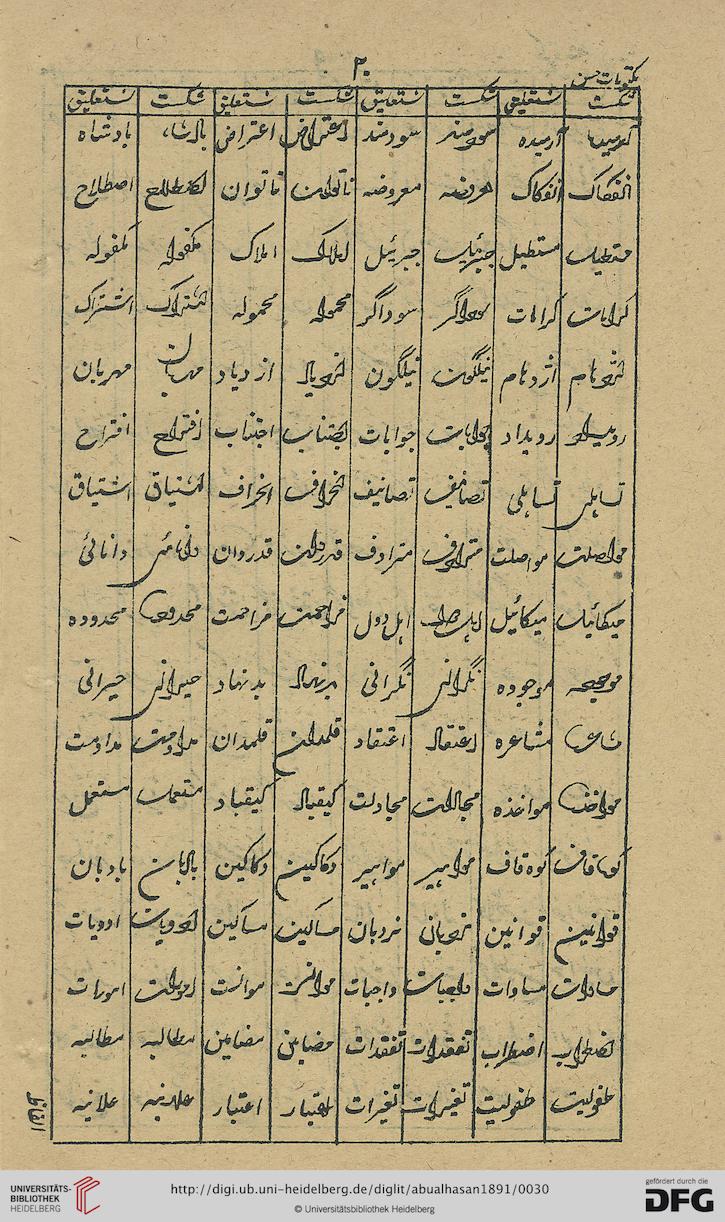 ۲۰
مکتوبات حسن
شکست نستعلیق شکست نستعلیق شکست نستعلیق شکست نستعلیق
آرمیده آرمیده سودمند سودمند اعتراض اعتراض بادشاه بادشاه
انفکاک انفکاک معروضه معروضه ناتوان ناتوان اصطلاح اصطلاح
مستطیل مستطیل جبرئیل جبرئیل املاک املاک مکفوله مکفوله
کرامات کرامات سوداگر سوداگر محموله محموله اشتراک اشتراک
اژدهام اژدهام نیلگون نیلگون ازدیاد ازدیاد مهربان مهربان
رویداد رویداد جوابات جوابات اجتناب اجتناب اقتراح اقتراح
تساہلی تساہلی تصانیف تصانیف انحراف انحراف اشتیاق اشتیاق
مواصلت مواصلت مترادف مترادف قدردان قدردان دانائی دانائی
میکائیل میکائیل اہل دول اہل دول مزاحمت مزاحمت محدوده محدوده
موجوده موجوده نگرانی نگرانی بدنهاد بدنهاد حیرانی حیرانی
مشاعره مشاعره اعتقاد اعتقاد قلمدان قلمدان مداومت مداومت
مواخذه مواخذه مجادلت مجادلت کیقباد کیقباد مستعمل مستعمل
کوه قاف کوه قاف مواہیر مواہیر دکاکین دکاکین بادبان بادبان
قوانین قوانین نردبان نردبان مساکین مساکین ادویات ادویات
مساوات مساوات واجبات واجبات موانست موانست امورات امورات
اضطراب اضطراب تفقدات تفقدات مضامین مضامین مطالبه مطالبه
طفولیت طفولیت تغیرات تغیرات اعتبار اعتبار علانیه علانیه
الفاظ
UNIVERSITÄTS-
BIBLIOTHEK
HEIDELBERG
http://digi.ub.uni-heidelberg.de/diglit/abualhasan1891/0030
© Universitätsbibliothek Heidelberg
gefördert durch die
DFG